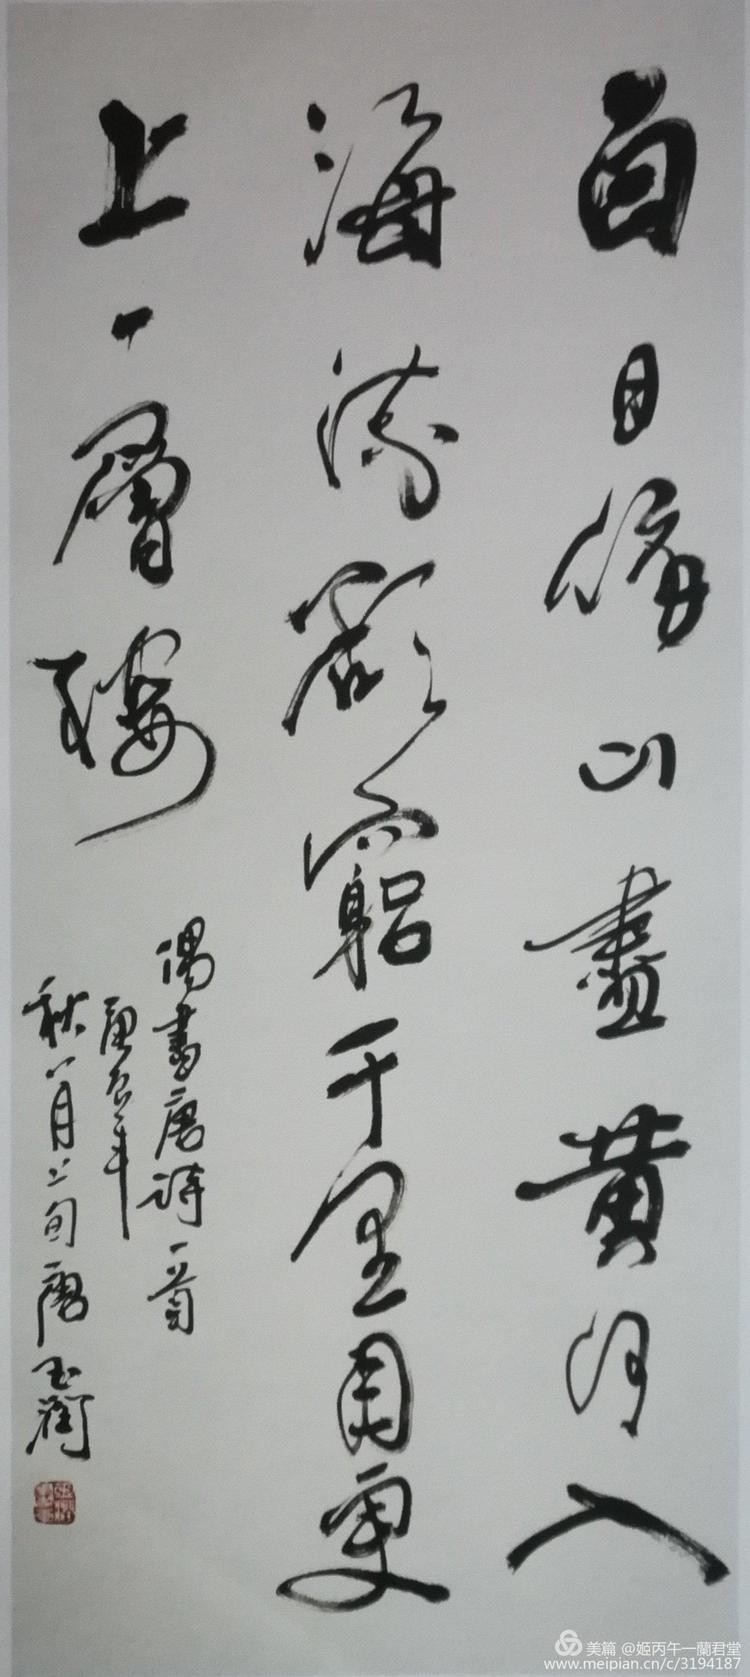 白日依山盡黄河入
海流欲窮千里目更
上一層樓
偶書唐詩一首
庚辰年
秋八月上旬唐玉衡
美篇 @姬丙午一蘭君堂
www.meipian.cn/c/3194187